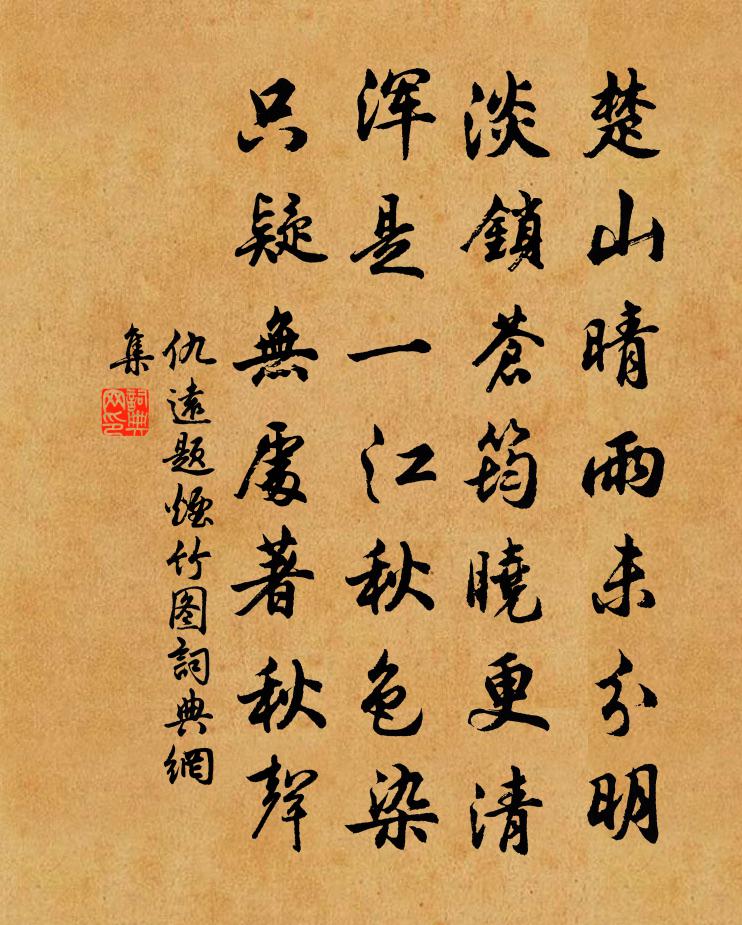 楚山晴雨未分明
淡鎖蒼筠曉更清
渾是一江秋色染
只疑無處著秋聲
仇遠題煙竹图詞典網
集
詞典
网印